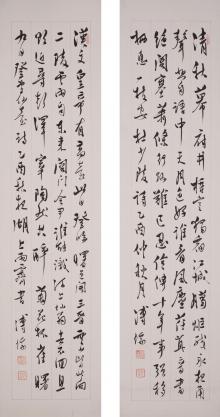 清秋幕府井梧寒獨宿江城蠟炬殘永夜角
聲悲自語中天月色好誰看風塵荏苒音書
絕關塞蕭條行路難已忍伶俜十年事強移
棲息一枝安杜少陵詩乙酉仲秋月溥儒
漢文皇帝有高臺此日登臨曙色開三晉雲山皆北向
二陵風雨自東來關門令尹誰能識河上仙翁去不回且
欲近尋彭澤宰陶然共醉菊花杯崔曙
九日登望仙臺詩乙酉秋於湖上南齋書溥儒